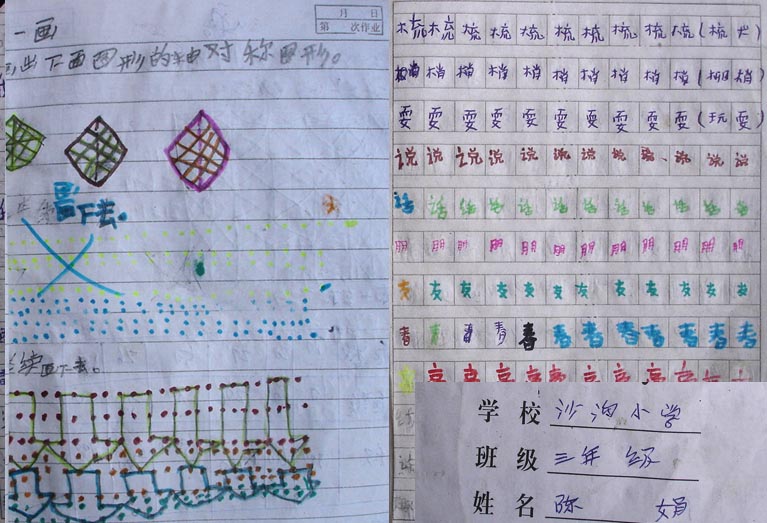 月 日
第 次作业
一画
出下面图形的轴对称图形。
画下去。
续画下去。
梳梳梳梳梳梳梳梳梳梳(梳
梢梢梢梢梢梢梢梢梢梢(树梢)
耍耍耍耍耍耍耍耍耍耍(玩耍)
说说说说说说说说说说说说
话话话话话话话话话话话话
朋朋朋朋朋朋朋朋朋朋朋朋
友友友友友友友友友友友友
春春春春春春春春春春春春
学校 沙沟小学
班级 三年级
姓名 陈娟